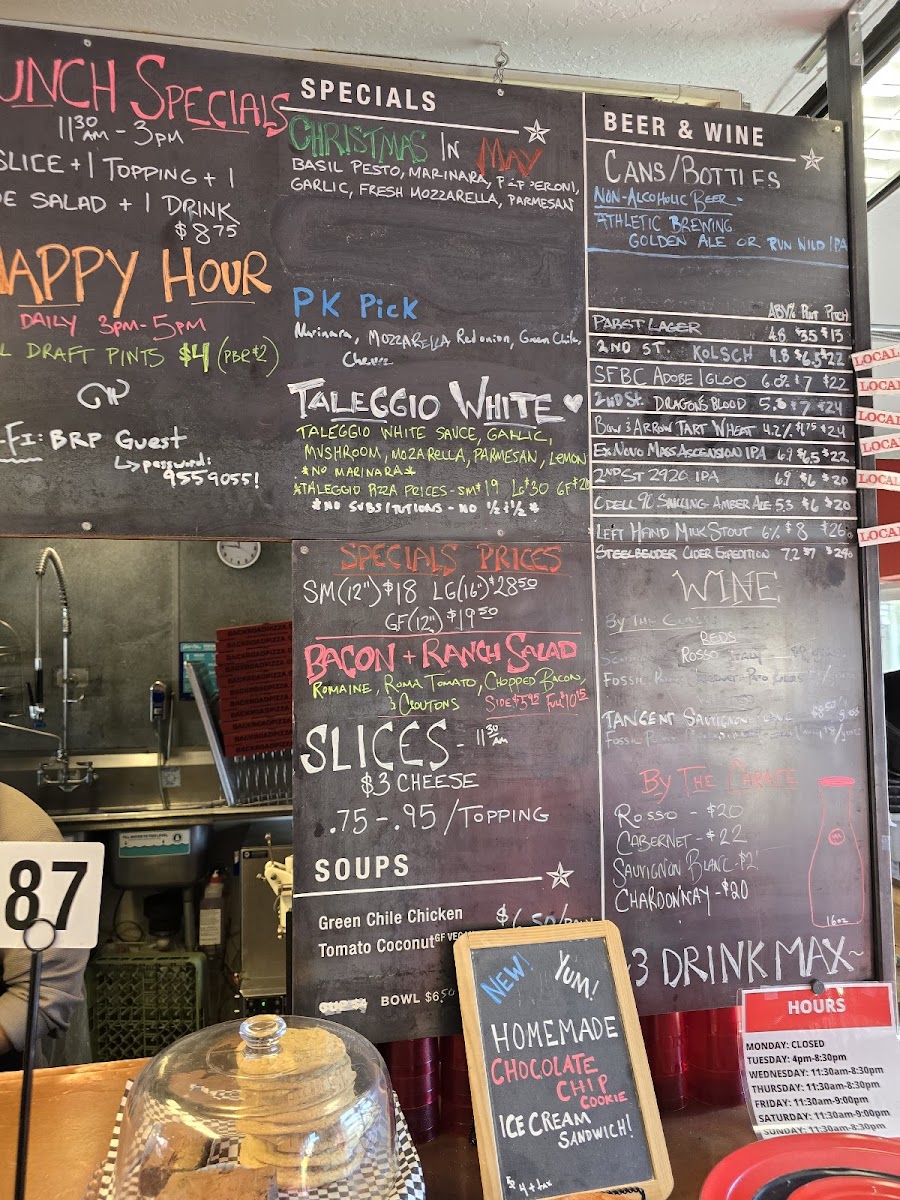 UNCH SPECIALS
11 30 AM - 3PM
SLICE + 1 TOPPING + 1
DE SALAD + 1 DRINK
$8 75
HAPPY HOUR
DAILY 3PM-5PM
L DRAFT PINTS $4 (PBR $2)
-FI: BRP Guest
password:
9559055!
SPECIALS
CHRISTMAS IN MAY
BASIL PESTO, MARINARA, PEPPERONI,
GARLIC, FRESH MOZZARELLA, PARMESAN
PK PicK
Marinara, MOZZARELLA, Red onion, Green Chile,
Cheese
TALEGGIO WHITE
TALEGGIO WHITE SAUCE, GARLIC,
MUSHROOM, MOZARELLA, PARMESAN, LEMON
*NO MARINARA*
*TALEGGIO PIZZA PRICES - SM $19 LG $30 GF $20
*NO SUBSTITUTIONS - NO ½ & ½*
SPECIALS PRICES
SM (12") $18 LG (16") $28 50
GF (12") $19 50
BACON + RANCH SALAD
ROMAINE, ROMA TOMATO, CHOPPED BACON,
& CROUTONS SIDE $5 95 FULL $10 95
SLICES - 11 30 AM
$3 CHEESE
.75 - .95 / TOPPING
SOUPS
Green Chile Chicken $6.50/
Tomato Coconut GF VEGAN
BOWL $6.50
BEER & WINE
CANS/BOTTLES
NON-ALCOHOLIC BEER -
ATHLETIC BREWING
GOLDEN ALE OR RUN WILD IPA
ABV% Pint Pitch
PABST LAGER 4.8 $3.5 $13
2ND ST. KOLSCH 4.8 $6.5 $22
SFBC ADOBE IGLOO 6.0% $7 $22
2ND St. DRAGONS BLOOD $7 $24
BOW & ARROW TART WHEAT 4.2% $24
EX NOVO MASS ASCENSION IPA 6.9 $6.5 $22
2ND ST 2920 IPA 6.9 $6 $20
ODELL 90 SHILLING AMBER ALE 5.3 $6 $20
LEFT HAND MILK STOUT 6% $8 $26
STEELBENDER CIDER EXPEDITION 7.2 $7
LOCAL
LOCAL
LOCAL
LOCAL
LOCAL
LOCAL
WINE
BY THE
REDS
ROSSO ITALY
FOSSIL
TANGENT SAUVIGNON
FOSSIL
BY THE CARAFE
ROSSO - $20
CABERNET - $22
SAUVIGNON BLANC -
CHARDONNAY - $20
16oz
3 DRINK MAX~
87
NEW! YUM!
HOMEMADE
CHOCOLATE
CHIP
COOKIE
ICE CREAM
SANDWICH!
4 + tax
HOURS
MONDAY: CLOSED
TUESDAY: 4pm-8:30pm
WEDNESDAY: 11:30am-8:30pm
THURSDAY: 11:30am-8:30pm
FRIDAY: 11:30am-9:00pm
SATURDAY: 11:30am-9:00pm
SUNDAY: 11:30am-8:30pm